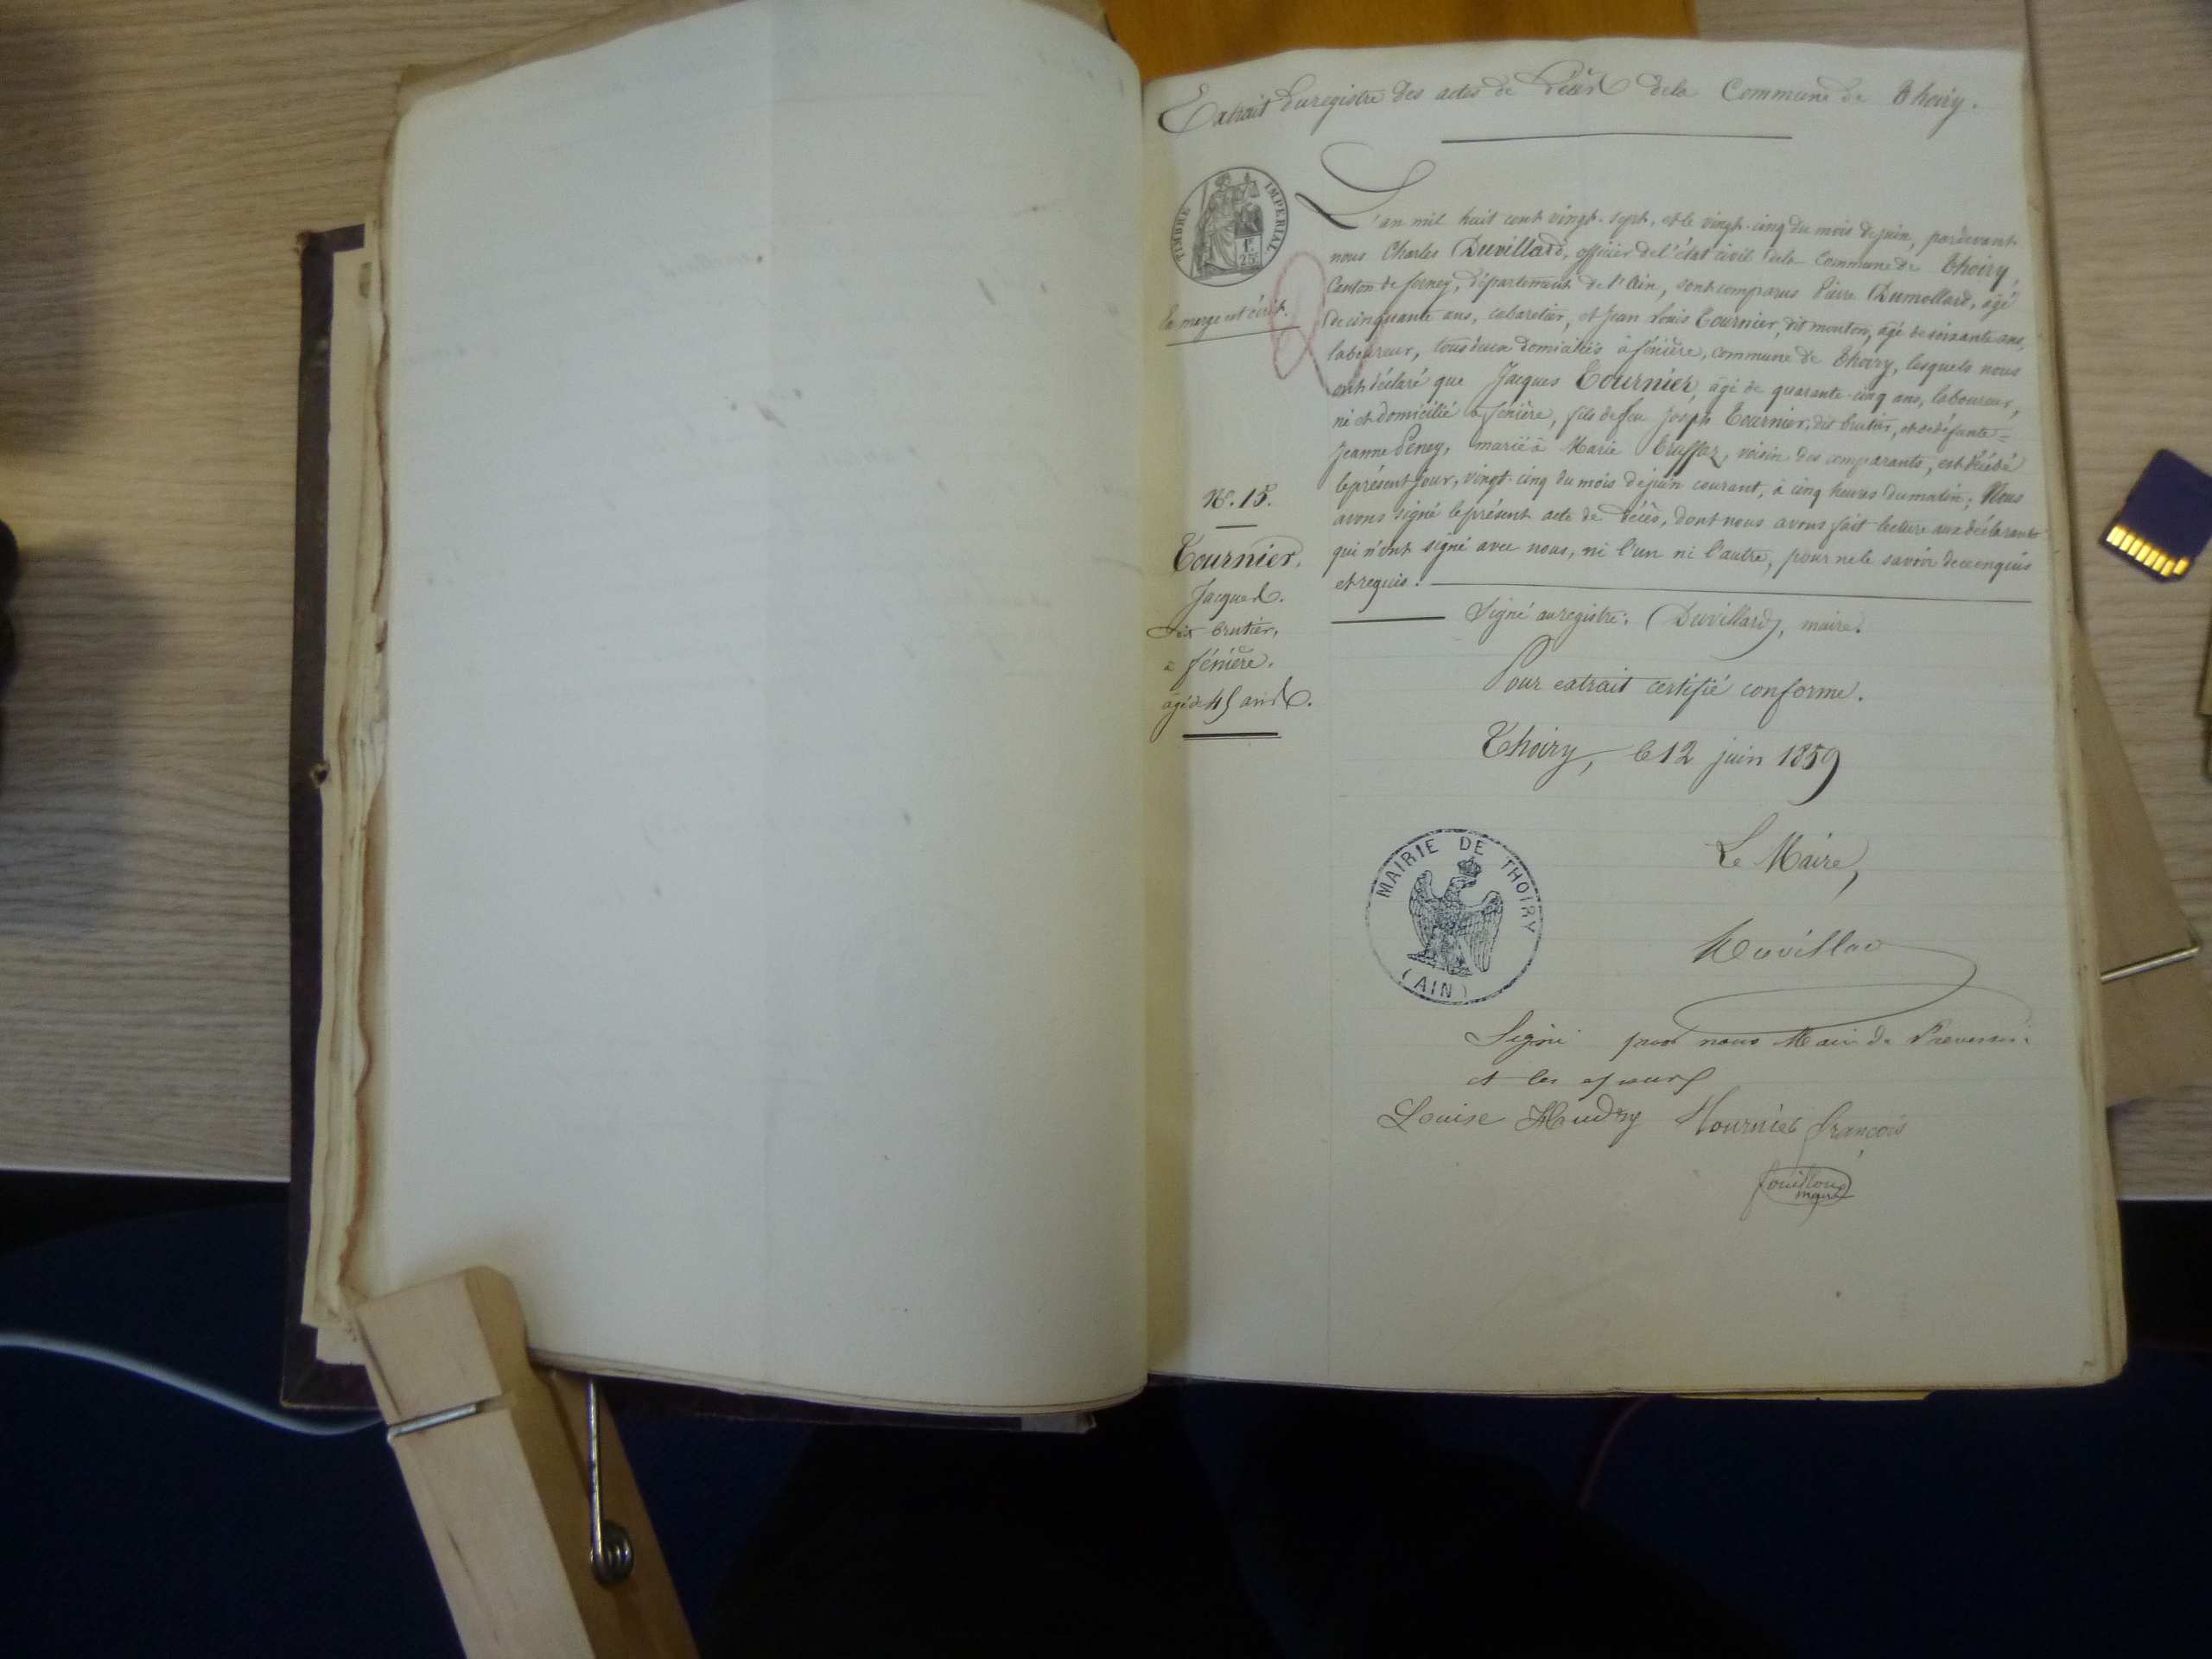 Extrait du registre des actes de Décès de la Commune de Thoiry.
TIMBRE IMPERIAL
1F.
25c
En marge est écrit.
L'an mil huit cent vingt-sept, et le vingt-cinq du mois de juin, pardevant
nous Charles Duvillard, officier de l'état civil de la Commune de Thoiry,
Canton de ferney, département de l'Ain, sont comparus Pierre Dumollard, âgé
de cinquante ans, cabaretier, et Jean Louis Tournier, dit mouton, âgé de soixante ans,
laboureur, tous deux domiciliés à fénière, commune de Thoiry, lesquels nous
ont déclaré que Jacques Tournier, âgé de quarante-cinq ans, laboureur,
né et domicilié à fénière, fils de feu Joseph Tournier, dit brutier, et de défunte=
Jeanne Peney, marié à Marie Truffaz, voisin des comparants, est décédé
le présent jour, vingt-cinq du mois de juin courant, à cinq heures du matin; Nous
avons signé le présent acte de décès, dont nous avons fait lecture aux déclarants
qui n'ont signé avec nous, ni l'un ni l'autre, pour ne le savoir de ce enquis
et requis.
N°. 15.
Tournier,
Jacques.
dit brutier,
à fénière.
âgé de 45 ans.
Signé au registre: Duvillard, maire.
Pour extrait certifié conforme.
Thoiry, le 12 juin 1859
MAIRIE DE THOIRY
(AIN)
Le Maire,
Signé par nous Maire de
et les epoux
Louise Hudry Tournier françois
maire